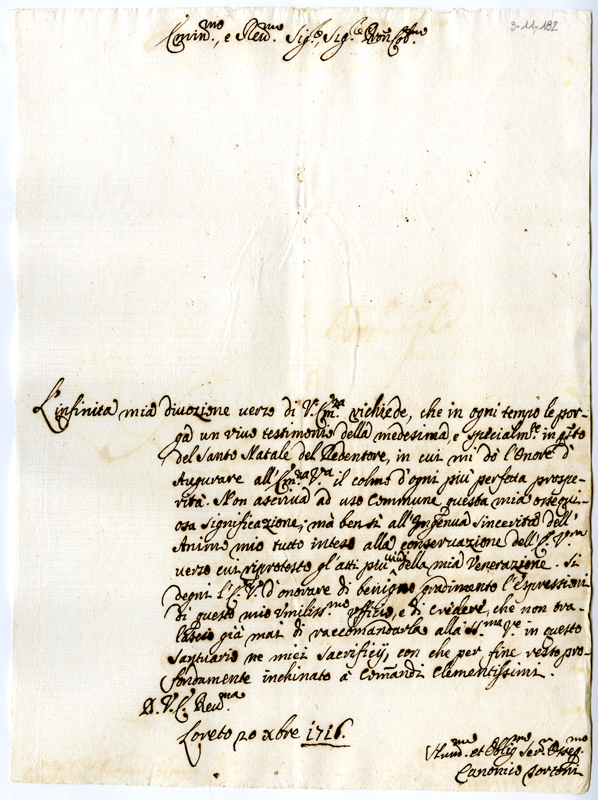 3-11-182
Emin.mo, e Rev.mo Sig.e, Sig.e Pron Col.mo
L'infinita mia divozione verso di V. Em.za richiede, che in ogni tempo le por-
ga un vivo testimonio della medesima, e specialm.te in q.sto
del Santo Natale del Redentore, in cui mi dò l'Onore d'
Augurare all'Em.za V.ra il colmo d'ogni più perfetta prospe-
rità. Non ascriva ad uso Commune questa mia ossequi-
osa significazione; mà bensì all'Ingenua sincerità dell'
Animo mio tutto inteso alla conservazione dell'E. V.ra
verso cui riprotesto gl'atti più vividi della mia Venerazione. Si
degni l'E. V. d'onorare di benigno gradimento l'espressioni
di questo mio Umiliss.mo Officio, e di credere, che non tra-
lascio già mai di raccomandarla alla SS.ma Ve. in questo
Santuario ne miei Sacrificij, con che per fine resto pro-
fondamente inchinato à Comãndi Clementissimi.
D. V. E. Rev.ma
Loreto 20 Xbre 1716.
Hum.mo et Oblig.mo Ser.e Osseq.mo
Canonico